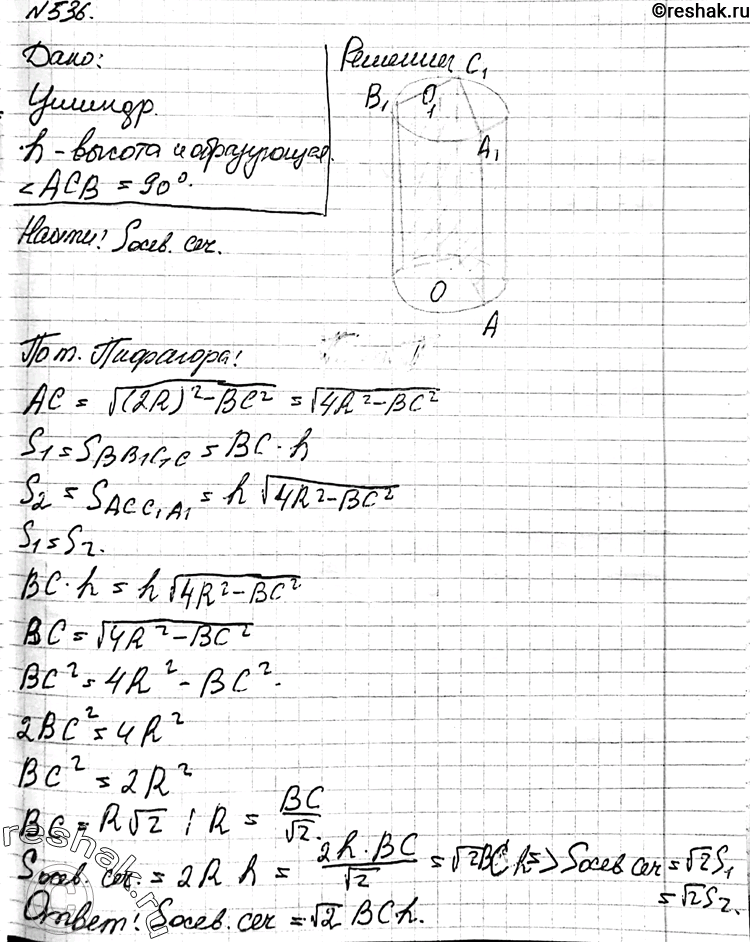 ©reshak.ru
N536.
Дано: Решение
Цилиндр.
h - высота и образующая.
<ACB = 90°.
Найти: Sосев. сеч.
C₁
B₁ O₁
A₁
O
A
По т. Пифагора:
AC = √((2R)² - BC²) = √(4R² - BC²)
S₁ = S_BB₁C₁C = BC · h
S₂ = S_ACC₁A₁ = h √(4R² - BC²)
S₁ = S₂.
BC · h = h √(4R² - BC²)
BC = √(4R² - BC²)
BC² = 4R² - BC².
2BC² = 4R²
BC² = 2R²
BC = R√2 ; R = BC/√2.
Sосев. сеч. = 2R h = 2h · BC/√2 = √2 BC h => Sосев сеч = √2 S₁
= √2 S₂.
Ответ: Sосев. сеч = √2 BC h.
reshak.ru